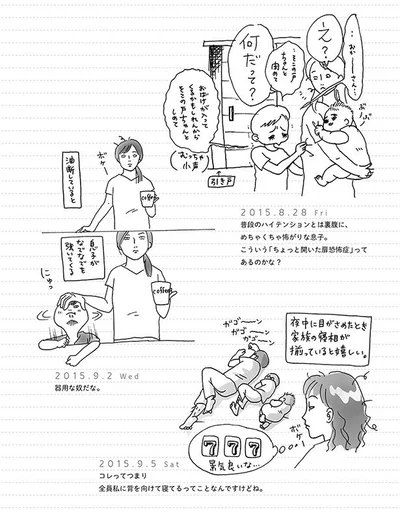 …おかーさん…
え？
…そこの戸
ちゃんと
閉めて
何だって？
おばけが入って
くるかもしれんから
そこの戸ちゃんと
しめて
(むっちゃ
小声)
引き戸
2015.8.28 Fri
普段のハイテンションとは裏腹に、
めちゃくちゃ怖がりな息子。
こういう「ちょっと開いた扉恐怖症」って
あるのかな？
油断していると
ボケー
coffee
息子が
なでなでを
強いてくる
にゅっ
coffee
2015.9.2 Wed
器用な奴だな。
夜中に目がさめたとき
家族の寝相が
揃っていると嬉しい。
ガゴーーン
ガゴーーン
ガゴーン
ボケー
777
景気良いな…
2015.9.5 Sat
コレってつまり
全員私に背を向けて寝てるってことなんですけどね。